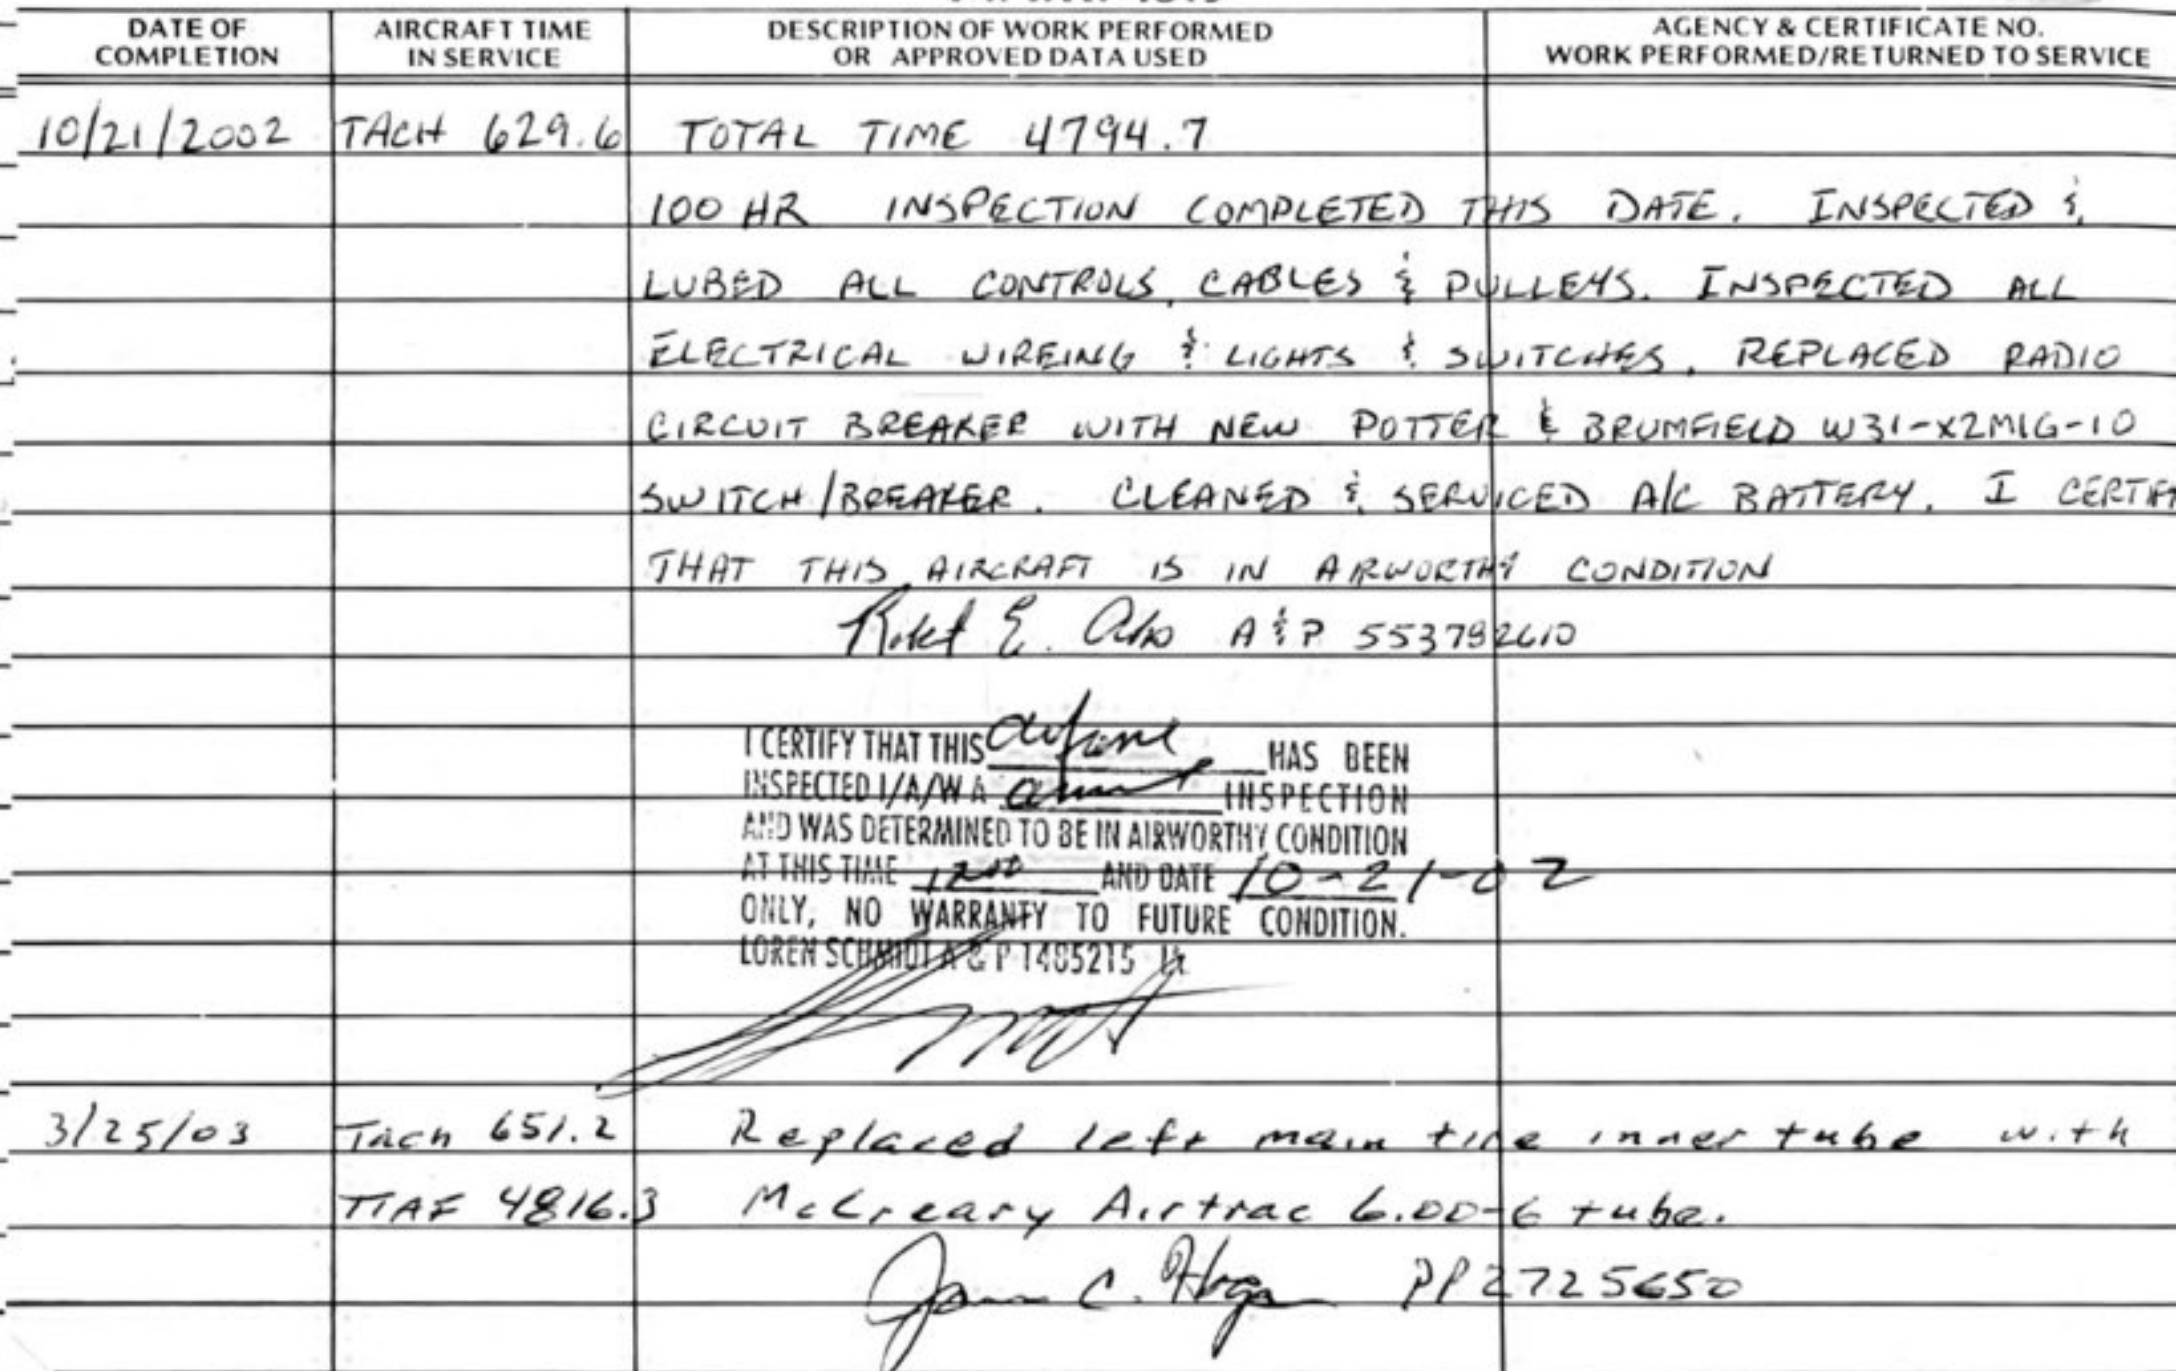 DATE OF COMPLETION
AIRCRAFT TIME IN SERVICE
DESCRIPTION OF WORK PERFORMED OR APPROVED DATA USED
AGENCY & CERTIFICATE NO. WORK PERFORMED/RETURNED TO SERVICE
10/21/2002 TACH 629.6 TOTAL TIME 4794.7
100 HR INSPECTION COMPLETED THIS DATE. INSPECTED &
LUBED ALL CONTROLS, CABLES & PULLEYS. INSPECTED ALL
ELECTRICAL WIREING & LIGHTS & SWITCHES. REPLACED RADIO
CIRCUIT BREAKER WITH NEW POTTER & BRUMFIELD W31-X2M1G-10
SWITCH/BREAKER. CLEANED & SERVICED A/C BATTERY. I CERTIFY
THAT THIS AIRCRAFT IS IN AIRWORTHY CONDITION
E. A&P 553792610
I CERTIFY THAT THIS HAS BEEN
INSPECTED I/A/W A INSPECTION
AND WAS DETERMINED TO BE IN AIRWORTHY CONDITION
AT THIS TIME 1200 AND DATE 10-21-02
ONLY, NO WARRANTY TO FUTURE CONDITION.
LOREN SCHMIDT A & P 1485215
3/25/03 Tach 651.2 Replaced left main tire inner tube with
TTAF 4816.3 McCreary Airtrac 6.00-6 tube.
C. PP2725650